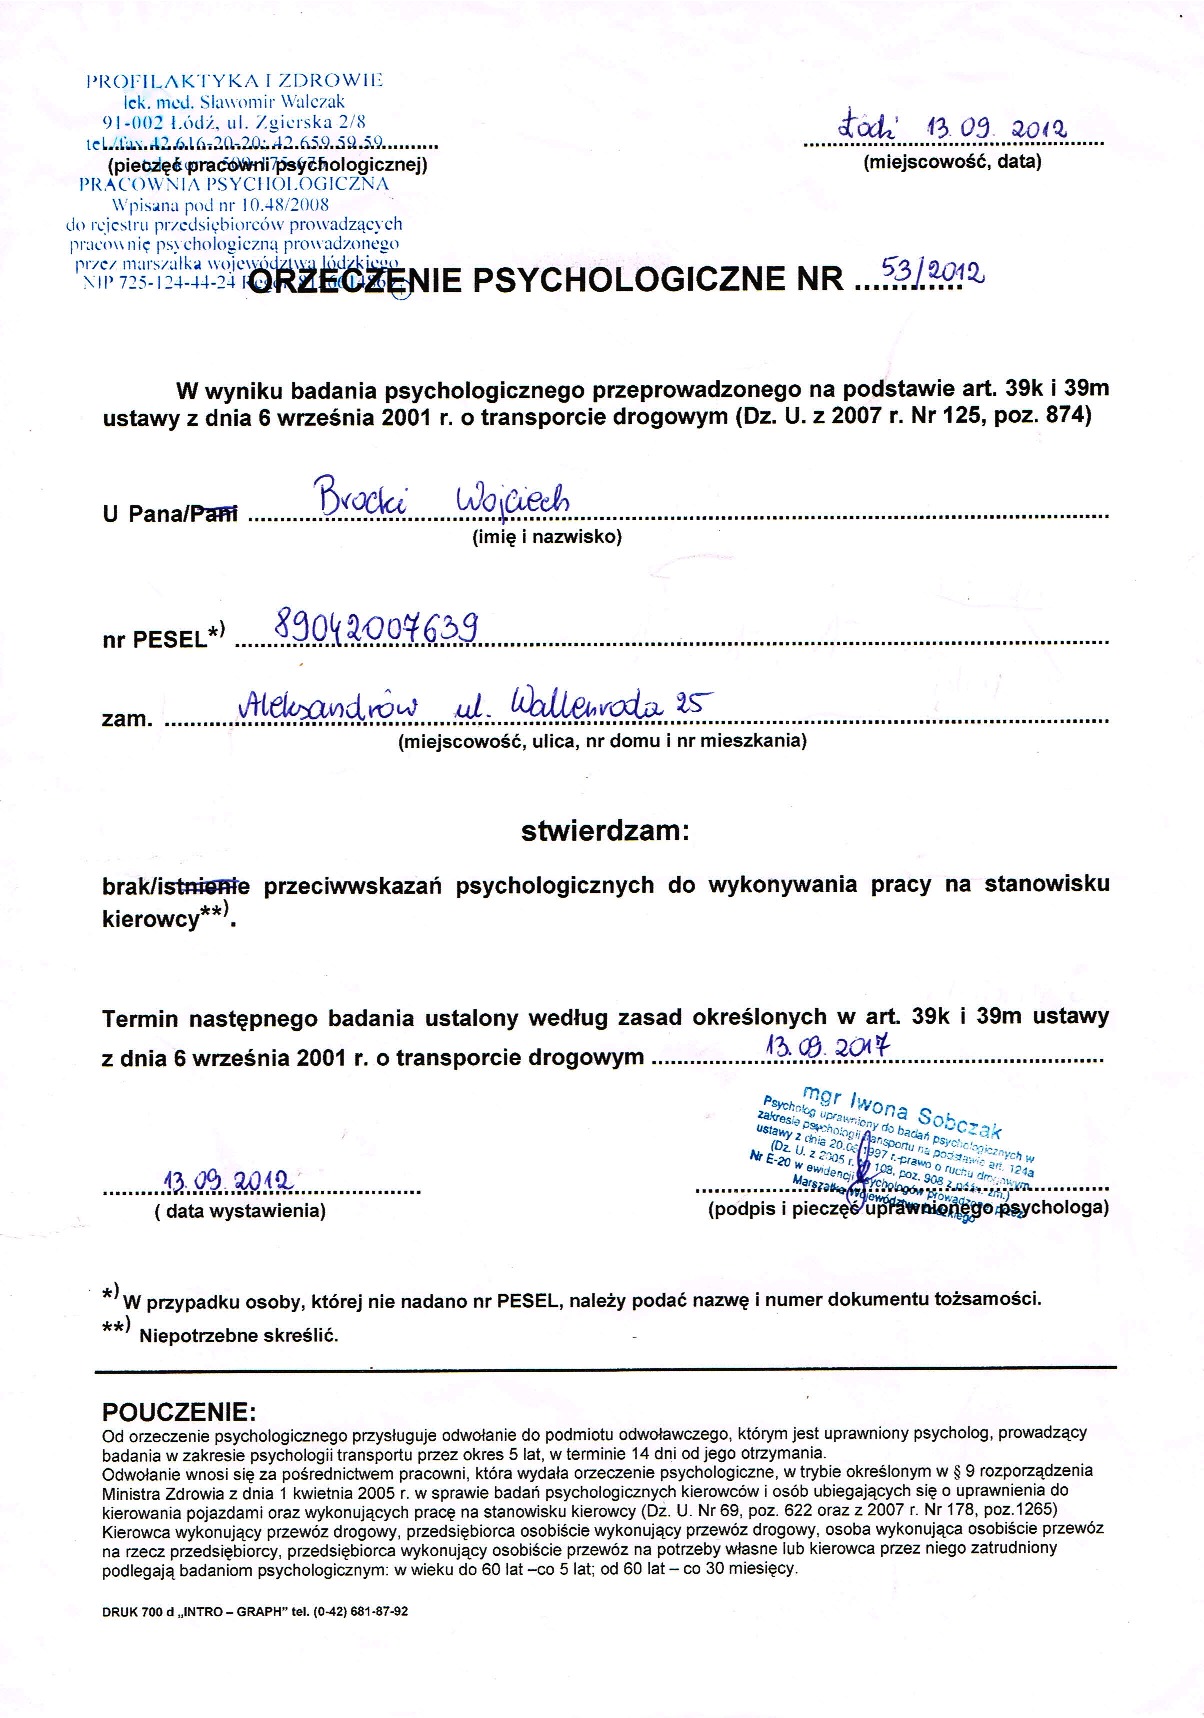 PROFILAKTYKA I ZDROWIE
lek. med. Sławomir Walczak
91-002 Łódź, ul. Zgierska 2/8
tel./fax 42 616-20-20; 42 659 59 59
(pieczęć pracowni psychologicznej)
Łódź 13.09.2012
(miejscowość, data)
PRACOWNIA PSYCHOLOGICZNA
Wpisana pod nr 10.48/2008
do rejestru przedsiębiorców prowadzących
pracownię psychologiczną prowadzonego
przez marszałka województwa łódzkiego
NIP 725-124-44-24
ORZECZENIE PSYCHOLOGICZNE NR 53/2012
W wyniku badania psychologicznego przeprowadzonego na podstawie art. 39k i 39m
ustawy z dnia 6 września 2001 r. o transporcie drogowym (Dz. U. z 2007 r. Nr 125, poz. 874)
U Pana/Pani Brocki Wojciech
(imię i nazwisko)
nr PESEL*) 89042007639
zam. Aleksandrów ul. Wallenroda 25
(miejscowość, ulica, nr domu i nr mieszkania)
stwierdzam:
brak/istnienie przeciwwskazań psychologicznych do wykonywania pracy na stanowisku
kierowcy**).
Termin następnego badania ustalony według zasad określonych w art. 39k i 39m ustawy
z dnia 6 września 2001 r. o transporcie drogowym 13.09.2017
mgr Iwona Sobczak
Psycholog uprawniony do badań psychologicznych w
zakresie psychologii transportu na podstawie art. 124a
ustawy z dnia 20.06.1997 r.-prawo o ruchu drogowym
(Dz. U. z 2005 r. 108, poz. 908 z późn. zm.)
Nr E-20 w ewidencji psychologów prowadzonej przez
Marszałka Województwa Łódzkiego
13.09.2012
( data wystawienia)
(podpis i pieczęć uprawnionego psychologa)
*) W przypadku osoby, której nie nadano nr PESEL, należy podać nazwę i numer dokumentu tożsamości.
**) Niepotrzebne skreślić.
POUCZENIE:
Od orzeczenie psychologicznego przysługuje odwołanie do podmiotu odwoławczego, którym jest uprawniony psycholog, prowadzący
badania w zakresie psychologii transportu przez okres 5 lat, w terminie 14 dni od jego otrzymania.
Odwołanie wnosi się za pośrednictwem pracowni, która wydała orzeczenie psychologiczne, w trybie określonym w § 9 rozporządzenia
Ministra Zdrowia z dnia 1 kwietnia 2005 r. w sprawie badań psychologicznych kierowców i osób ubiegających się o uprawnienia do
kierowania pojazdami oraz wykonujących pracę na stanowisku kierowcy (Dz. U. Nr 69, poz. 622 oraz z 2007 r. Nr 178, poz.1265)
Kierowca wykonujący przewóz drogowy, przedsiębiorca osobiście wykonujący przewóz drogowy, osoba wykonująca osobiście przewóz
na rzecz przedsiębiorcy, przedsiębiorca wykonujący osobiście przewóz na potrzeby własne lub kierowca przez niego zatrudniony
podlegają badaniom psychologicznym: w wieku do 60 lat –co 5 lat; od 60 lat – co 30 miesięcy.
DRUK 700 d „INTRO – GRAPH" tel. (0-42) 681-87-92